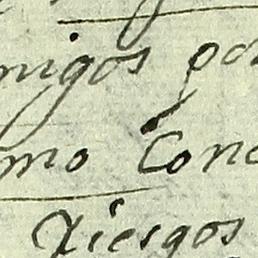 migos po
mo Conc
Riesgos